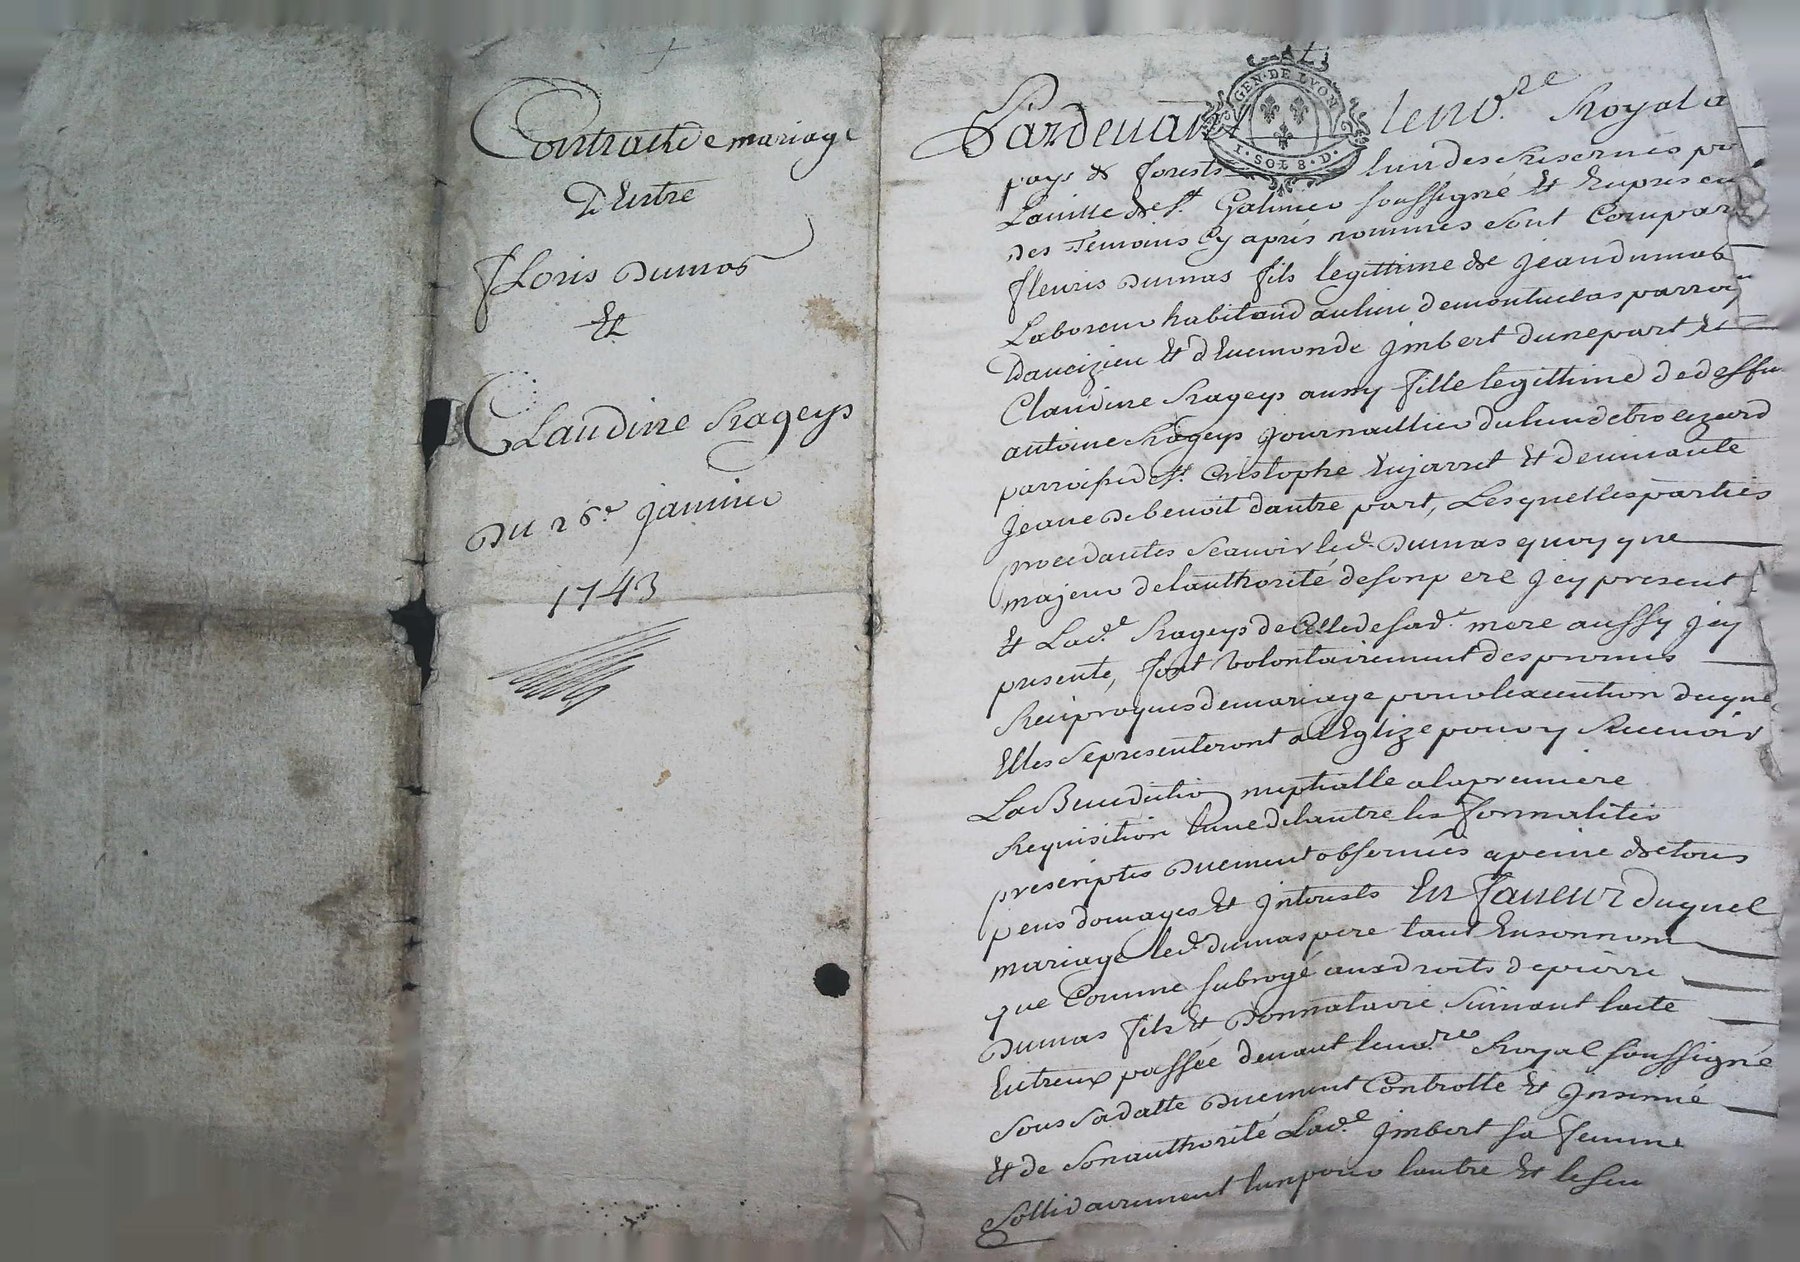 Contract de mariage
D'Entre
Floris Dumas
Et
Claudine Rageys
Du 26e janvier
1743
GEN·DE LYON
1·SOL 8·D·
Pardevant le no.re Royal a
pays de forests lun des Reservés po
Laville de St. Galmier soussigné Et En presence
des Temoins Cy aprés nommés sont Compar
fleuris Dumas fils legittime de Jean dumas
Laboreur habitand au lieu de montuclas parroi
Daveizieu Et d'Euemonde Jmbert dune part Et
Claudine Rageys aussy fille legittime de deffu
antoine Rageys Journaillier du lieu de
parroisse de St. Cristophe En jarret Et de vivante
Jeane de benoit dautre part, Lesquelles parties
procedantes scauoir led. Dumas quoy que
majeur de lauthorité de son pere Jcy present
Et Lad.e Rageys de Celle de sad.e mere aussy Jcy
presente, font volontairement des promis
Reciproques de mariage pour lexecution duquel
Elles se presenteront a l'Eglize pour y Recevoir
La Benediction nuptialle a la premiere
Requisition lune de lautre les formalités
prescriptes Duement observées a peine de tous
pens domages Et Jnterests En faveur duquel
mariage led. dumas pere tant En son nom
que Comme subrogé aux droits de pierre
Dumas fils Et Donnataire suivant lacte
Entreux passée devant le no.re Royal soussigné
sous sa datte Duement Controllé Et Jnsinué
Et de son authorité Lad.e Jmbert sa femme
sollidairement lun pour lautre Et le seu